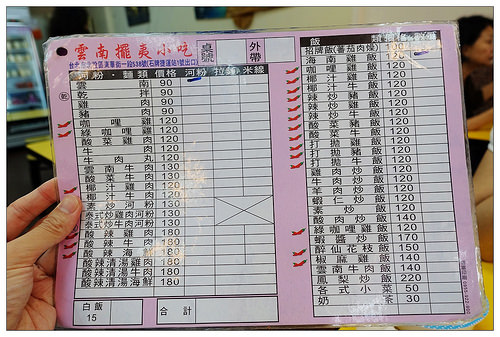 雲南擺夷小吃
桌號
外帶
河粉．麵類 價格 河粉 拉麵 米線
雲南 90
乾拌 90
雞肉 90
豬肉 90
咖哩雞 120
綠咖哩雞 120
酸菜雞 120
牛肉 120
牛肉丸 120
雲南牛肉 130
酸菜牛肉 130
椰汁雞 130
椰汁牛肉 130
素炒河粉 130
泰式炒雞肉河粉 130
泰式炒牛肉河粉 130
酸辣雞肉 180
酸辣牛肉 180
酸辣海鮮 180
酸辣清湯雞肉 180
酸辣清湯牛肉 180
酸辣清湯海鮮 180
白飯
15
合計
飯類 價格 數量
招牌飯(蕃茄肉燥) 100
海南雞飯
咖哩雞飯 120
椰汁雞飯 120
椰汁牛飯 120
辣炒豬飯 120
辣炒雞飯 120
辣炒牛飯 120
酸菜豬飯 120
酸菜牛飯 120
打拋豬飯 120
打拋雞飯 120
打拋牛飯 120
雞肉炒飯 120
牛肉炒飯 120
羊肉炒飯 120
蝦仁炒飯 120
素炒飯 120
酸肉炒飯 140
綠咖哩雞飯 120
蝦醬炒飯 170
醉仙花枝飯 150
椒麻雞飯 140
雲南牛肉飯 140
鳳梨炒飯 120
各式小菜 50
奶茶 30